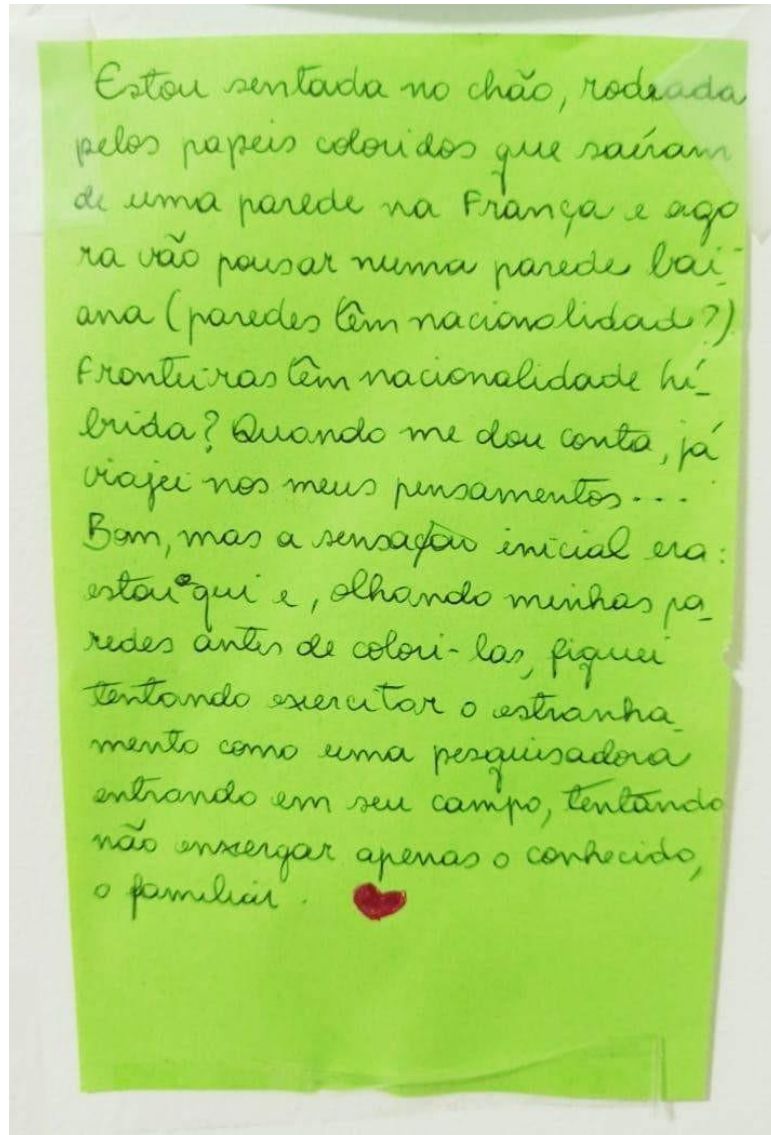 Estou sentada no chão, rodeada
pelos papeis coloridos que saíram
de uma parede na França e ago
ra vão pousar numa parede bai_
ana (paredes têm nacionalidade?)
Fronteiras têm nacionalidade hí_
brida? Quando me dou conta, já
viajei nos meus pensamentos...
Bom, mas a sensação inicial era:
estou aqui e, olhando minhas pa_
redes antes de colori-las, fiquei
tentando exercitar o estranha_
mento como uma pesquisadora
entrando em seu campo, tentando
não enxergar apenas o conhecido,
o familiar.